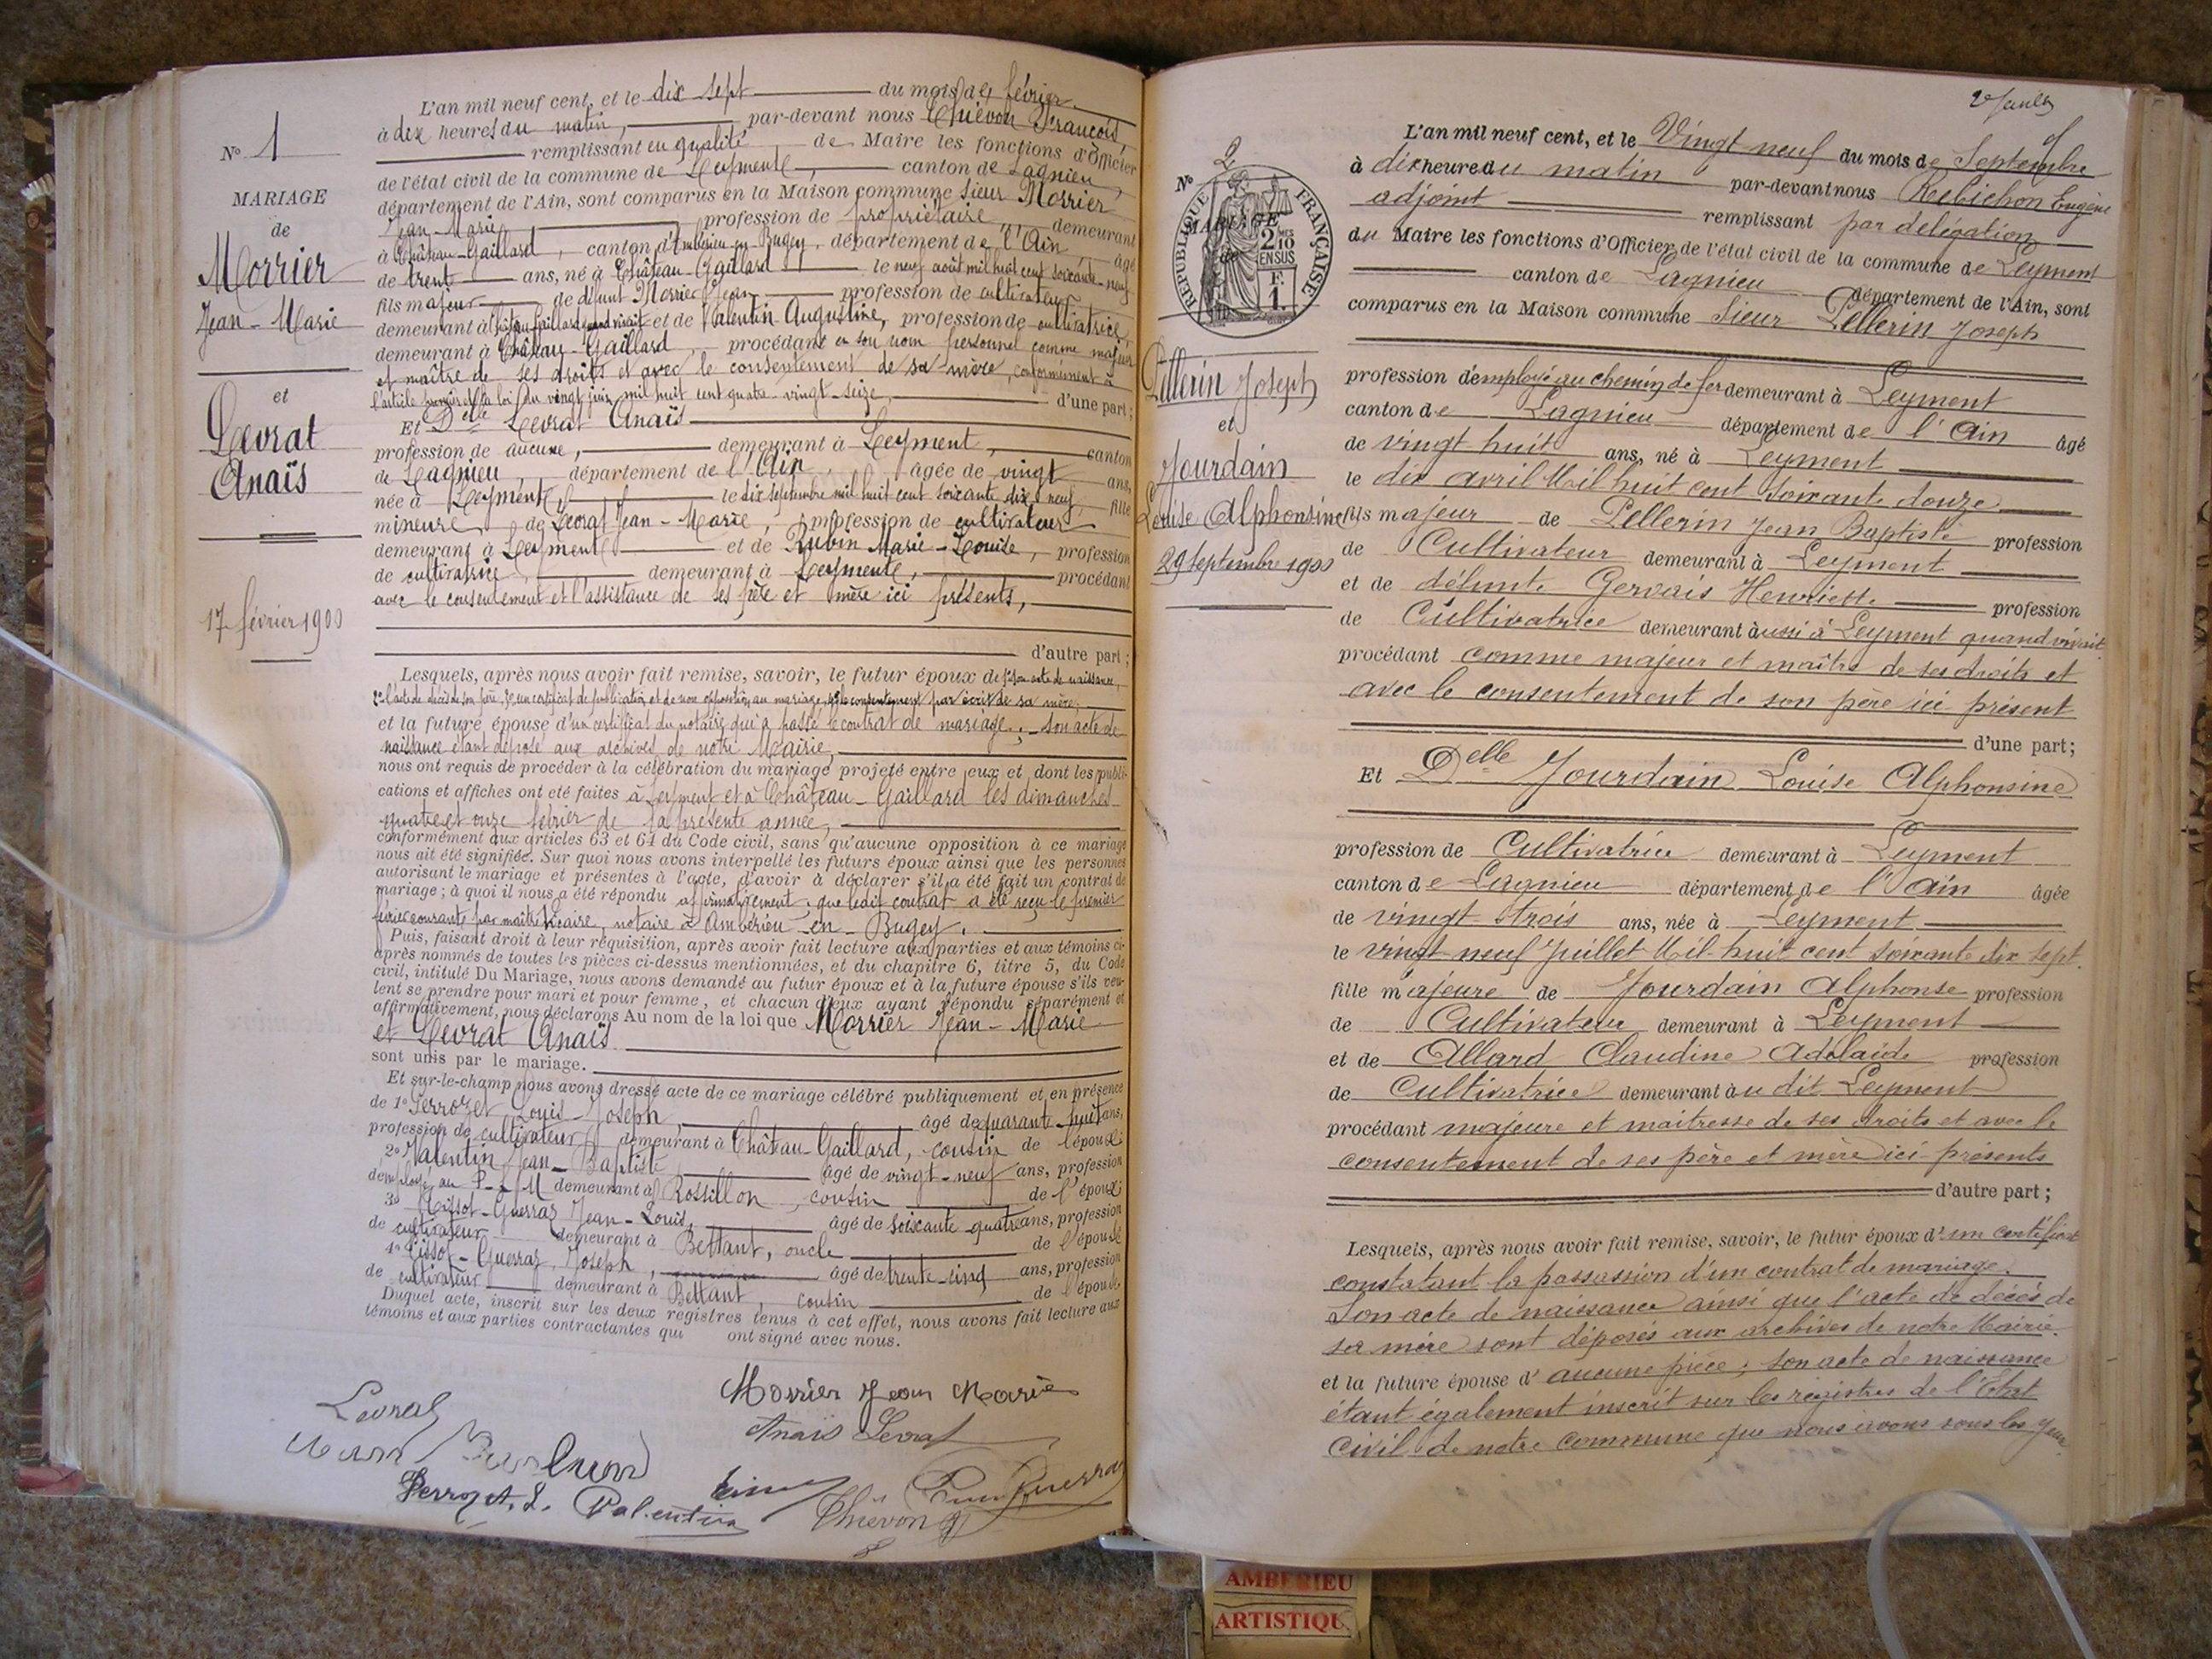 N° 1
MARIAGE
de
Morrier
Jean-Marie
et
Levrat
Anaïs
17 février 1900
L'an mil neuf cent, et le dix sept du mois de février
à dix heures du matin, par-devant nous Thiévon François,
remplissant en qualité de Maire les fonctions d'Officier
de l'état civil de la commune de Leyment, canton de Lagnieu,
département de l'Ain, sont comparus en la Maison commune Sieur Morrier
Jean-Marie profession de propriétaire demeurant
à Château-Gaillard, canton d'Ambérieu-en-Bugey, département de l'Ain, âgé
de trente ans, né à Château-Gaillard le neuf août mil huit cent soixante-neuf
fils majeur de défunt Morrier Jean profession de cultivateur
demeurant à Château-Gaillard quand vivait et de Valentin Augustine, profession de cultivatrice,
demeurant à Château-Gaillard, procédant en son nom personnel comme majeur
et maître de ses droits et avec le consentement de sa mère, conformément à
l'article premier de la loi du vingt juin mil huit cent quatre-vingt-seize, d'une part;
Et Delle Levrat Anaïs
profession de aucune, demeurant à Leyment, canton
de Lagnieu, département de l'Ain, âgée de vingt ans,
née à Leyment, le dix septembre mil huit cent soixante dix neuf, fille
mineure de Levrat Jean-Marie, profession de cultivateur
demeurant à Leyment et de Rubin Marie-Louise, profession
de cultivatrice, demeurant à Leyment, procédant
avec le consentement et l'assistance de ses père et mère ici présents,
d'autre part;
Lesquels, après nous avoir fait remise, savoir, le futur époux de 1° son acte de naissance,
2° l'acte de décès de son père, 3° un certificat de publication et de non opposition au mariage, 4° le consentement par écrit de sa mère;
et la future épouse d'un certificat du notaire qui a passé le contrat de mariage; son acte de
naissance étant déposé aux archives de notre Mairie,
nous ont requis de procéder à la célébration du mariage projeté entre eux et dont les publi-
cations et affiches ont été faites à Leyment et à Château-Gaillard les dimanches
quatre et onze février de la présente année,
conformément aux articles 63 et 64 du Code civil, sans qu'aucune opposition à ce mariage
nous ait été signifiée. Sur quoi nous avons interpellé les futurs époux ainsi que les personnes
autorisant le mariage et présentes à l'acte, d'avoir à déclarer s'il a été fait un contrat de
mariage; à quoi il nous a été répondu affirmativement, que ledit contrat a été reçu le premier
février courant par maître notaire à Ambérieu-en-Bugey.
Puis, faisant droit à leur réquisition, après avoir fait lecture aux parties et aux témoins ci-
après nommés de toutes les pièces ci-dessus mentionnées, et du chapitre 6, titre 5, du Code
civil, intitulé Du Mariage, nous avons demandé au futur époux et à la future épouse s'ils veu-
lent se prendre pour mari et pour femme, et chacun d'eux ayant répondu séparément et
affirmativement, nous déclarons Au nom de la loi que Morrier Jean-Marie
et Levrat Anaïs
sont unis par le mariage.
Et sur-le-champ nous avons dressé acte de ce mariage célébré publiquement et en présence
de 1° Perrozet Louis-Joseph, âgé de quarante-huit ans,
profession de cultivateur demeurant à Château-Gaillard, cousin de l'époux;
2° Valentin Jean-Baptiste âgé de vingt-neuf ans, profession
d'employé au P-L-M demeurant à Rossillon, cousin de l'époux;
3° Tissot-Guerraz Jean-Louis, âgé de soixante-quatre ans, profession
de cultivateur demeurant à Bettant, oncle de l'épouse
4° Tissot-Guerraz Joseph, âgé de trente-cinq ans, profession
de cultivateur demeurant à Bettant, cousin de l'épouse
Duquel acte, inscrit sur les deux registres tenus à cet effet, nous avons fait lecture aux
témoins et aux parties contractantes qui ont signé avec nous.
Morrier Jean Marie
Levrat
Anaïs Levrat
Perrozet. L. Valentin
Thiévon
N° 2
MARIAGE
de
RÉPUBLIQUE FRANÇAISE
2/10 EN SUS
F. 1
Pellerin Joseph
et
Jourdain
Louise Alphonsine
29 Septembre 1900
L'an mil neuf cent, et le Vingt neuf du mois de Septembre
à dix heure du matin par-devant nous Rebichon Eugène
adjoint remplissant par délégation
du Maire les fonctions d'Officier de l'état civil de la commune de Leyment
canton de Lagnieu département de l'Ain, sont
comparus en la Maison commune Sieur Pellerin Joseph
profession d'employé au chemin de fer demeurant à Leyment
canton de Lagnieu département de l'Ain âgé
de vingt huit ans, né à Leyment
le dix avril Mil huit cent soixante douze
fils majeur de Pellerin Jean Baptiste profession
de Cultivateur demeurant à Leyment
et de défunte Gervais Henriette profession
de Cultivatrice demeurant aussi à Leyment quand vivait
procédant comme majeur et maître de ses droits et
avec le consentement de son père ici présent
d'une part;
Et Delle Jourdain Louise Alphonsine
profession de Cultivatrice demeurant à Leyment
canton de Lagnieu département de l'Ain âgée
de vingt-trois ans, née à Leyment
le vingt neuf Juillet Mil-huit cent soixante dix sept.
fille majeure de Jourdain Alphonse profession
de Cultivateur demeurant à Leyment
et de Allard Claudine Adélaïde profession
de Cultivatrice demeurant au dit Leyment
procédant majeure et maitresse de ses droits et avec le
consentement de ses père et mère ici présents
d'autre part;
Lesquels, après nous avoir fait remise, savoir, le futur époux d'un certificat
constatant la passassion d'un contrat de mariage.
Son acte de naissance ainsi que l'acte de décès de
sa mère sont déposés aux archives de notre Mairie.
et la future épouse d'aucune pièce; son acte de naissance
étant également inscrit sur les registres de l'Etat
Civil de notre commune que nous avons sous les yeux.
AMBERIEU
ARTISTIQU